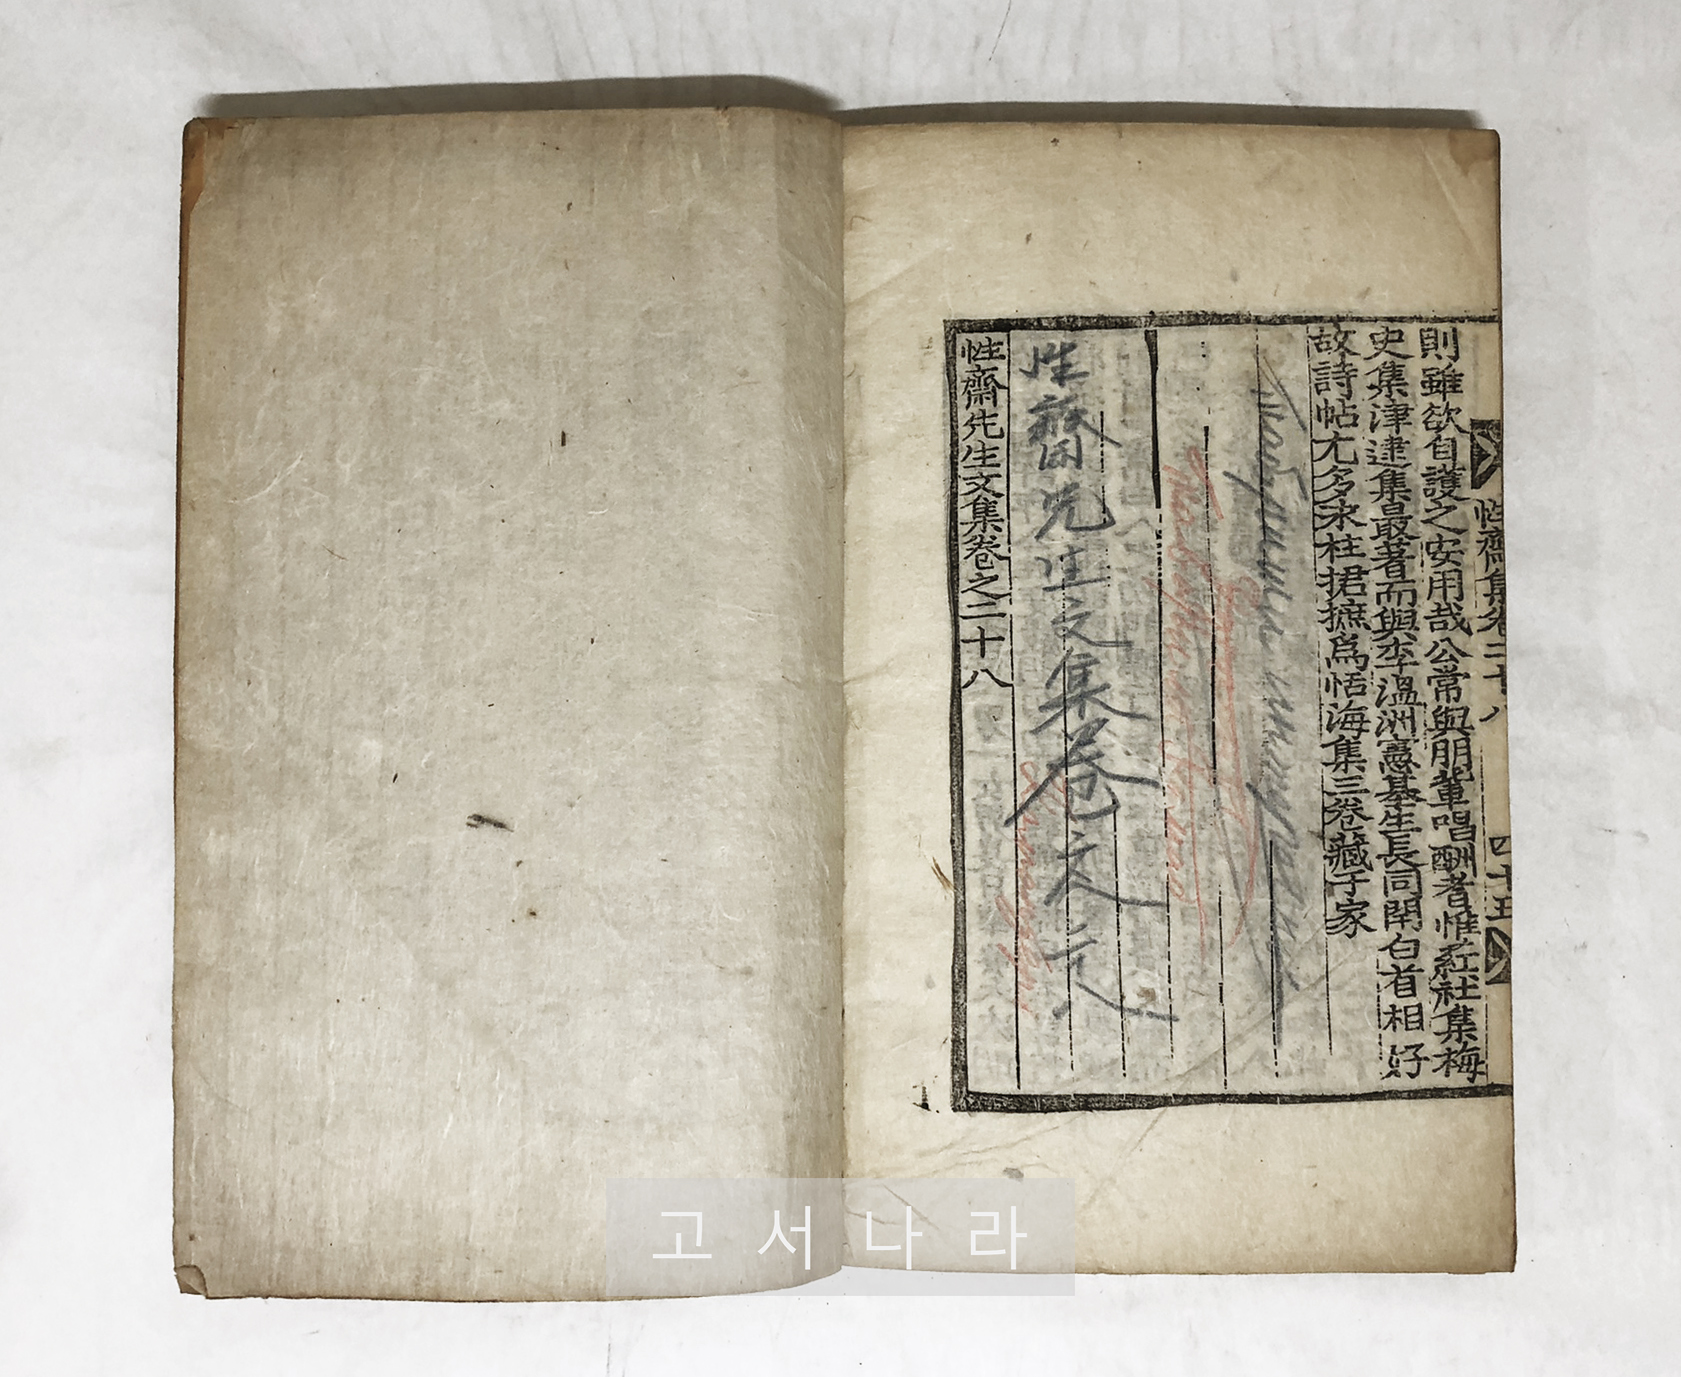 性齋集卷二十八 四十五
則雖欲自護之安用哉公常與朋輩唱酬者惟紅社集梅
史集津逮集最著而與李溫洲憲綦生長同閈白首相好
故詩帖尤多氷柱捃摭爲恬海集三卷藏于家
性齋先生文集卷文
性齋先生文集卷之二十八
고서나라